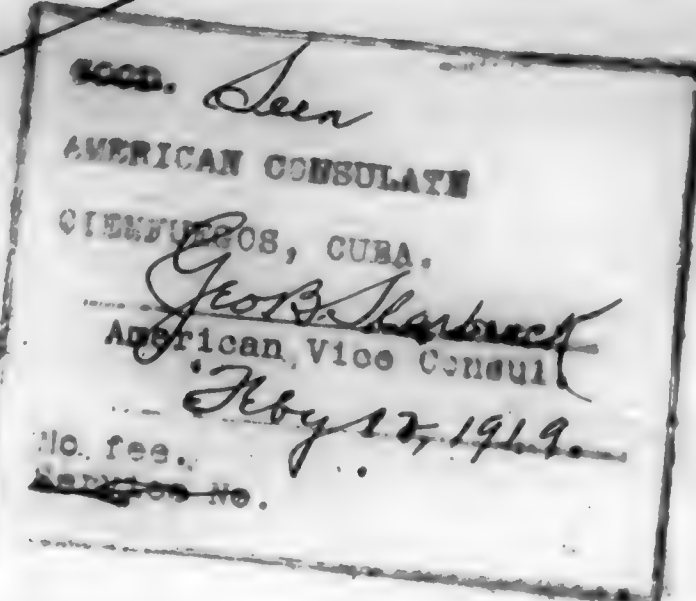 GOOD. Seen
AMERICAN CONSULATE
CIENFUEGOS, CUBA.
Geo B Starbuck
American Vice Consul
Feby 12, 1919.
No fee.
Service No.